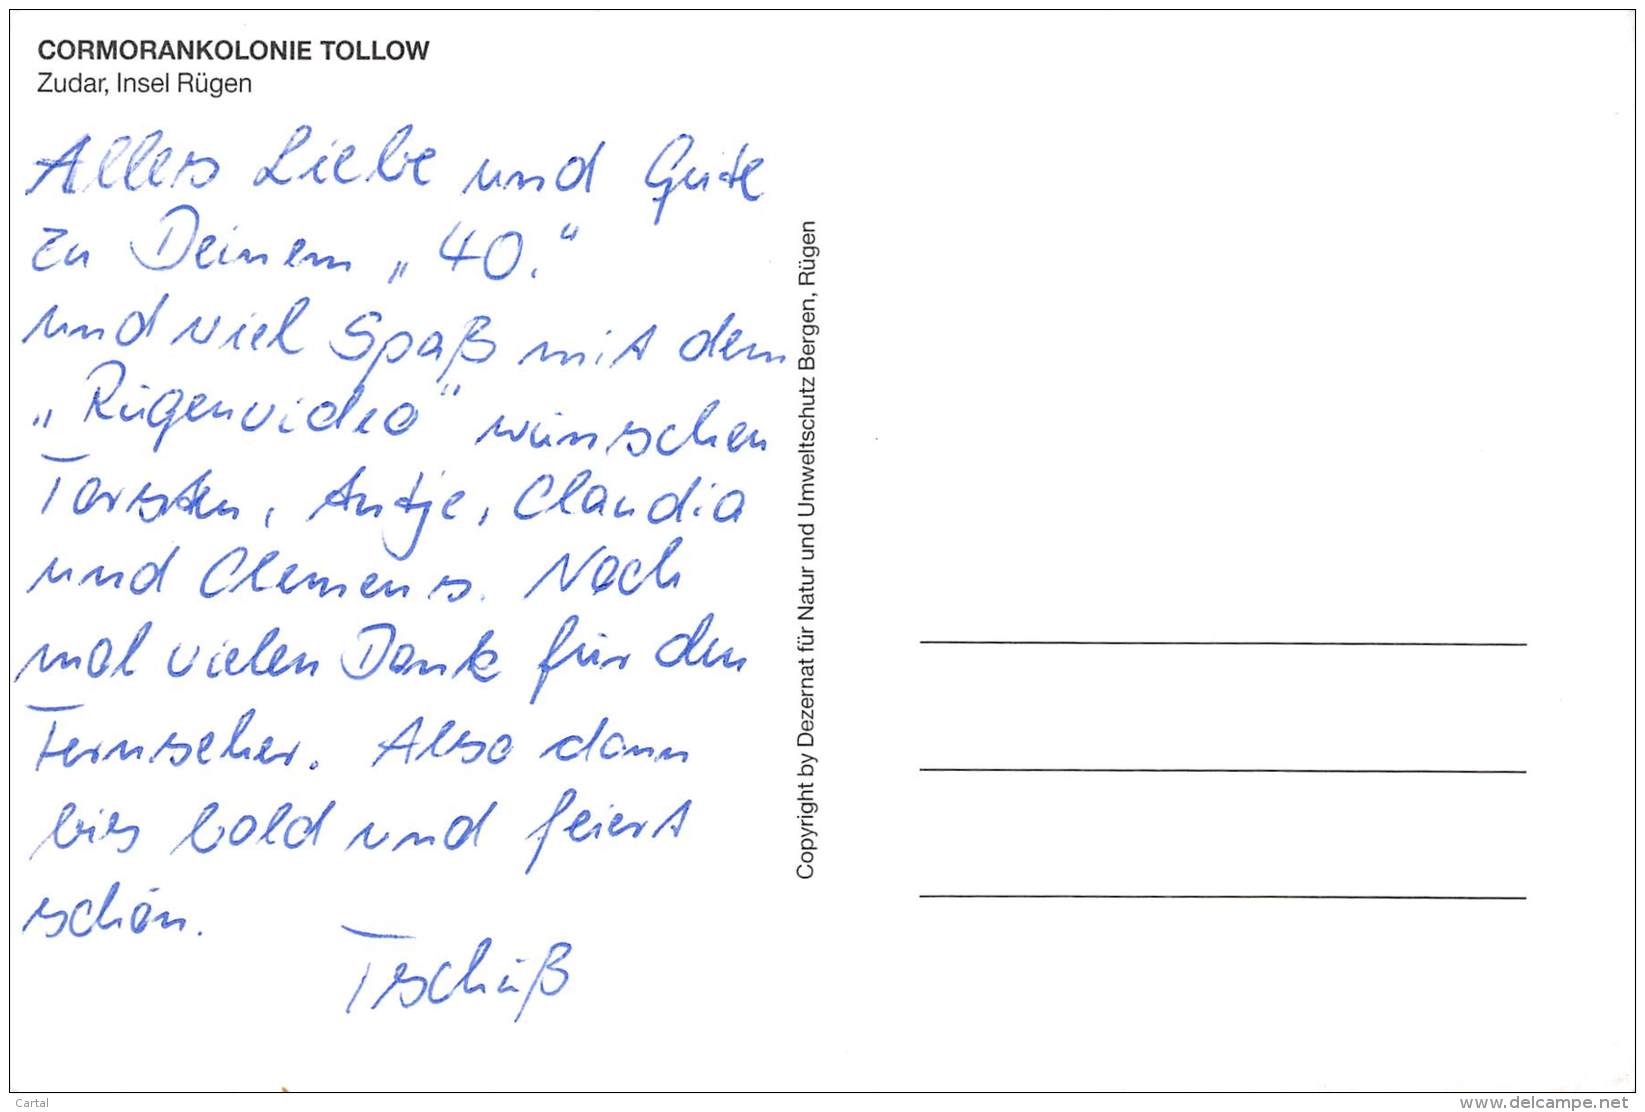 CORMORANKOLONIE TOLLOW
Zudar, Insel Rügen
Alles Liebe und Gute
zu Deinem „40.“
und viel Spaß mit dem
„Rügenvideo“ wünschen
Torsten, Antje, Claudia
und Clemens. Noch
mal vielen Dank für den
Fernseher. Also dann
bis bald und feiert
schön.
Tschüß
Copyright by Dezernat für Natur und Umweltschutz Bergen, Rügen
Cartal
www.delcampe.net